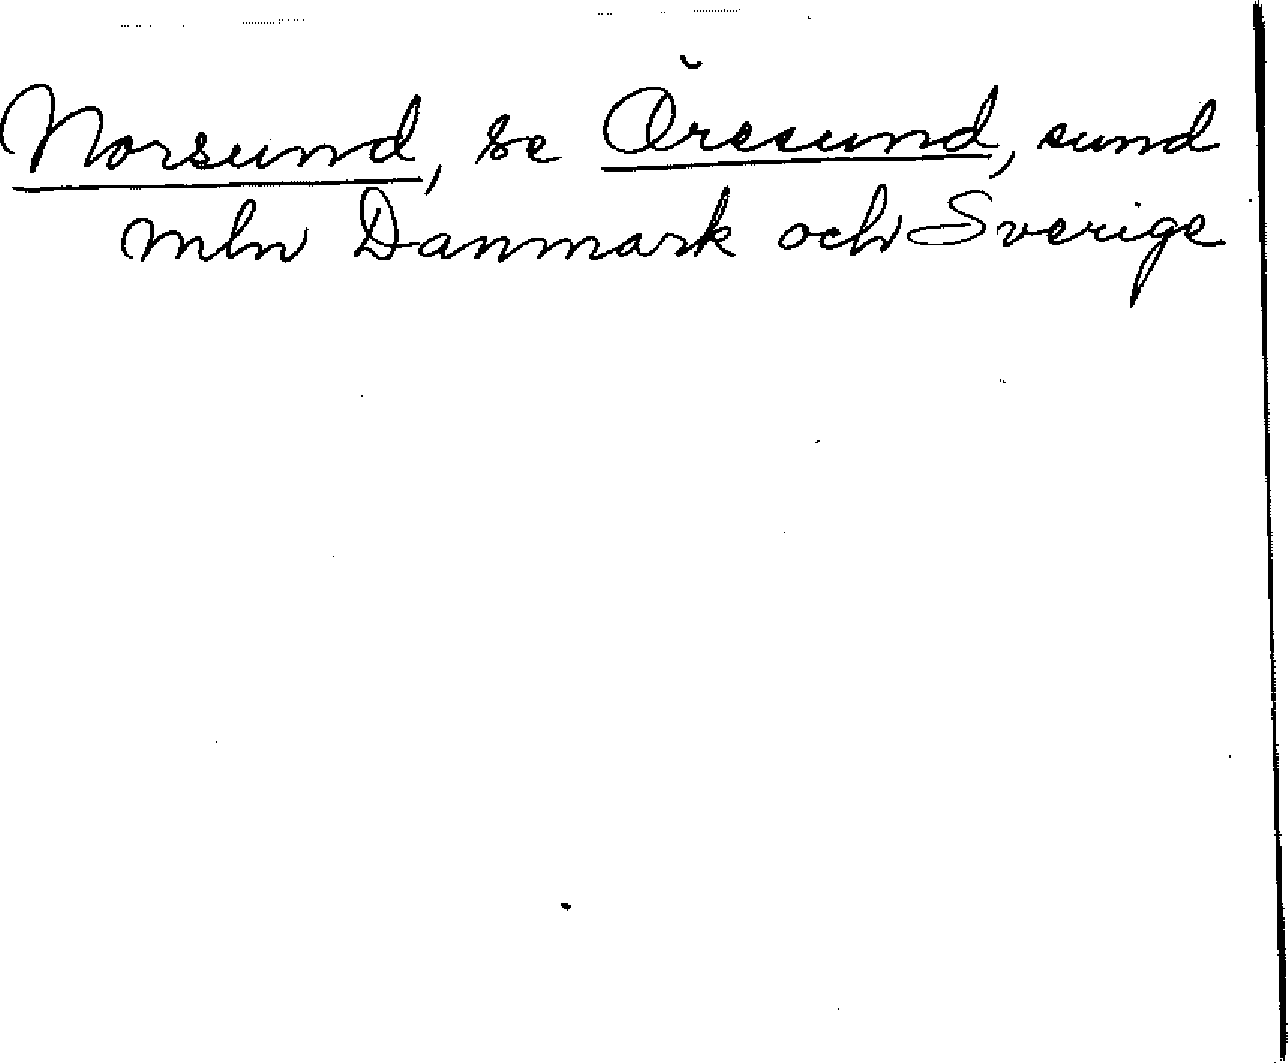 Norsund, se Öresund, sund
mln Danmark och Sverige